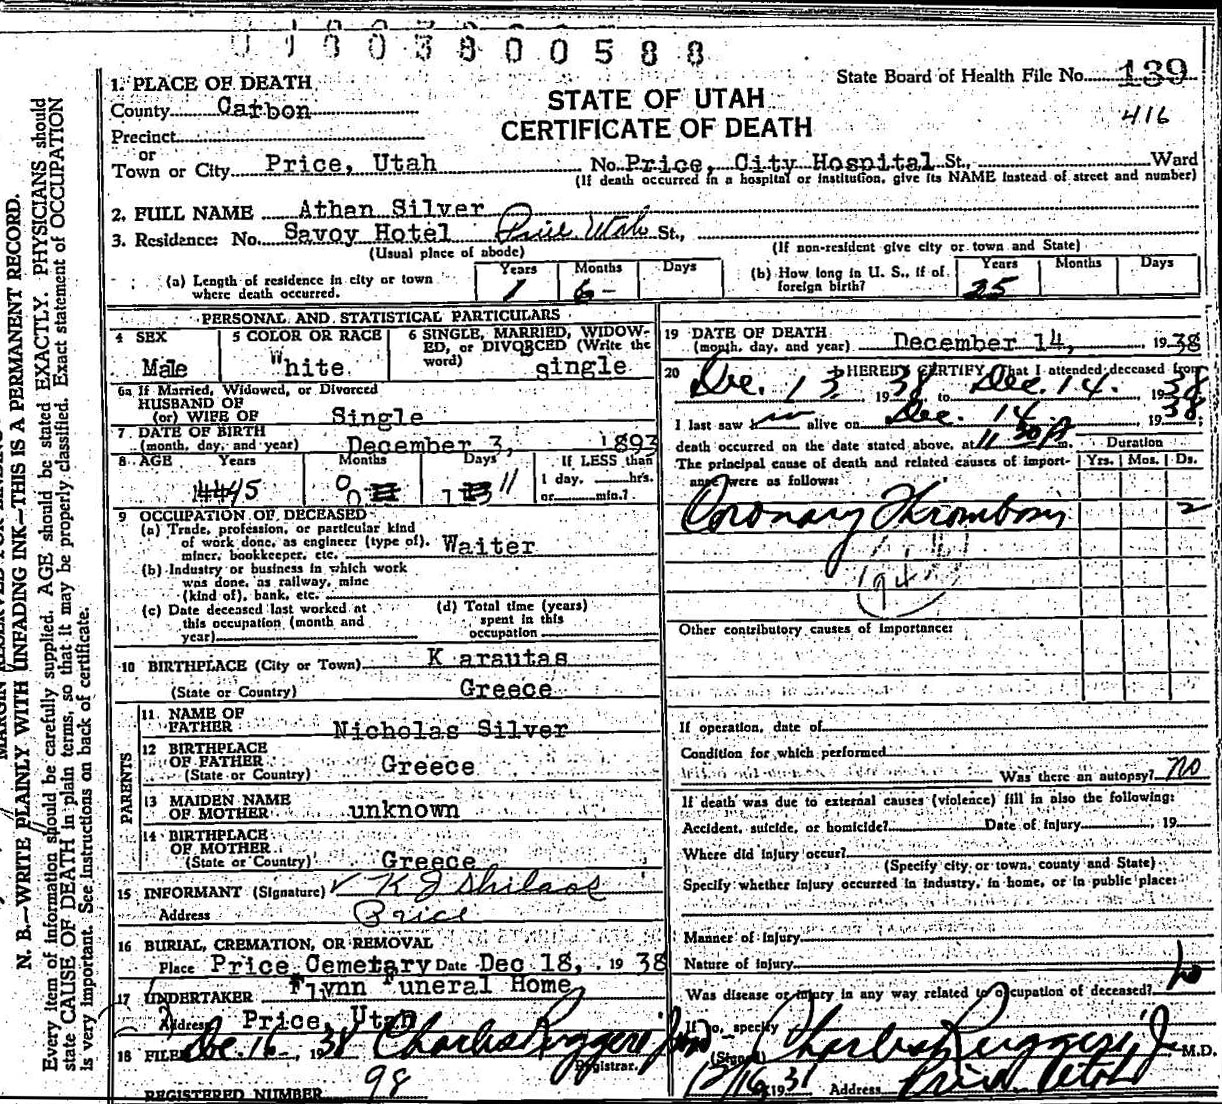 01003800588
State Board of Health File No. 139
416
STATE OF UTAH
CERTIFICATE OF DEATH
1. PLACE OF DEATH
County Carbon
Precinct
or
Town or City Price, Utah No. Price, City Hospital St., Ward
(If death occurred in a hospital or institution, give its NAME instead of street and number)
2. FULL NAME Athan Silver
3. Residence: No. Savoy Hotel Price Utah St.,
(Usual place of abode) (If non-resident give city or town and State)
(a) Length of residence in city or town where death occurred. Years 1 Months 6 Days
(b) How long in U. S., if of foreign birth? Years 25 Months Days
PERSONAL AND STATISTICAL PARTICULARS
4 SEX Male
5 COLOR OR RACE White
6 SINGLE, MARRIED, WIDOW-
ED, or DIVORCED (Write the
word) single
6a If Married, Widowed, or Divorced
HUSBAND OF
(or) WIFE OF Single
7 DATE OF BIRTH
(month, day, and year) December 3, 1893
8 AGE Years 45 Months 0 Days 11 If LESS than
1 day, hrs.
or min.?
9 OCCUPATION OF DECEASED
(a) Trade, profession, or particular kind
of work done, as engineer (type of),
miner, bookkeeper, etc. Waiter
(b) Industry or business in which work
was done, as railway, mine
(kind of), bank, etc.
(c) Date deceased last worked at
this occupation (month and
year)
(d) Total time (years)
spent in this
occupation
10 BIRTHPLACE (City or Town) Karsutas
(State or Country) Greece
PARENTS
11 NAME OF
FATHER Nicholas Silver
12 BIRTHPLACE
OF FATHER
(State or Country) Greece
13 MAIDEN NAME
OF MOTHER unknown
14 BIRTHPLACE
OF MOTHER
(State or Country) Greece
15 INFORMANT (Signature) K J Shilaos
Address Price
16 BURIAL, CREMATION, OR REMOVAL
Place Price Cemetary Date Dec 18, 1938
17 UNDERTAKER Flynn Funeral Home
Address Price, Utah
18 FILED Dec. 16, 1938 Charles Ruggeri Jr
Registrar.
REGISTERED NUMBER 98
19 DATE OF DEATH
(month, day, and year) December 14, 1938
20 I HEREBY CERTIFY, That I attended deceased from
Dec. 13 1938 to Dec. 14. 1938
I last saw him alive on Dec. 14 1938
death occurred on the date stated above, at 11 30 P m. Duration
The principal cause of death and related causes of import- Yrs. Mos. Ds.
ance were as follows:
Coronary Thrombosis 2
Other contributory causes of importance:
If operation, date of
Condition for which performed
Was there an autopsy? No
If death was due to external causes (violence) fill in also the following:
Accident, suicide, or homicide? Date of injury , 19
Where did injury occur?
(Specify city or town, county and State)
Specify whether injury occurred in industry, in home, or in public place:
Manner of injury
Nature of injury
Was disease or injury in any way related to occupation of deceased? No
If so, specify
(Signed) Charles Ruggeri, Jr M.D.
12/16 1931 Address Price Utah
N. B.—WRITE PLAINLY WITH UNFADING INK—THIS IS A PERMANENT RECORD.
Every item of information should be carefully supplied. AGE should be stated EXACTLY. PHYSICIANS should
state CAUSE OF DEATH in plain terms, so that it may be properly classified. Exact statement of OCCUPATION
is very important. See instructions on back of certificate.